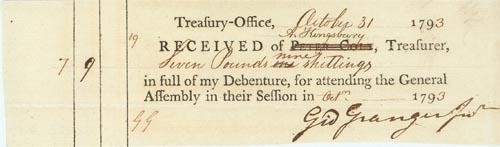 Treasury-Office, October 31 1793
A. Kingsbury
19
RECEIVED of PETER COLT, Treasurer,
nine
7 9 Seven Pounds one shillings
in full of my Debenture, for attending the General
Assembly in their Session in Octr 1793
GG
Gid Granger Jnr